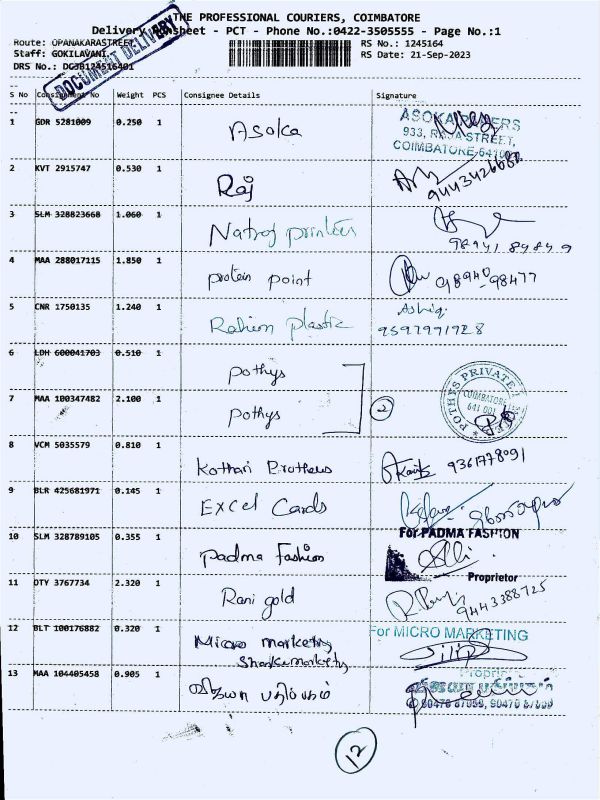 THE PROFESSIONAL COURIERS, COIMBATORE
Delivery Runsheet - PCT - Phone No.:0422-3505555 - Page No.:1
Route: OPANAKARASTREET
RS No.: 1245164
Staff: GOKILAVANI.
RS Date: 21-Sep-2023
DRS No.:
DOCUMENT DELIVERY
S No Consignment No Weight PCS Consignee Details Signature
1 GDR 5281009 0.250 1 Asoka
ASOKA PAPERS
933, RAJA STREET,
COIMBATORE-641001
2 KVT 2915747 0.530 1 Raj
3 SLM 328823668 1.060 1 Natraj printers
98941 89849
4 MAA 288017115 1.850 1 protein point 98940-98477
5 CNR 1750135 1.240 1 Rahem plastic
Ashiq.
9597991928
6 LDH 600041703 0.510 1 pothys
7 MAA 100347482 2.100 1 pothys 2
POTHYS PRIVATE
COIMBATORE
641 001
8 VCM 5035579 0.810 1 Kothari Brothers 9361778091
9 BLR 425681971 0.145 1 Excel Cards
10 SLM 328789105 0.355 1 Padma Fashion
For PADMA FASHION
Proprietor
11 OTY 3767734 2.320 1 Rani gold 9443388725
12 BLT 100176882 0.320 1 Micro marketing
For MICRO MARKETING
Dilip
Proprietor
13 MAA 104405458 0.905 1 விஜயா பதிப்பகம்
விஜயா பதிப்பகம்
12